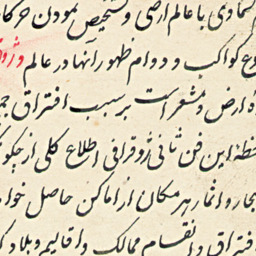 سماوی با عالم ارضی و تشخیص نمودن حرکا
وع کواکب و دوام ظهور آنها در عالم وژو
ه ارض و مشعر است بر سبب افتراق جم
حظهٔ این فن ثانی ژوقرافی اطلاع کلی از چکو
بحار و انهار هر مکان از اماکن حاصل خوا
افتراق و انقسام ممالک و اقالیم و بلاد